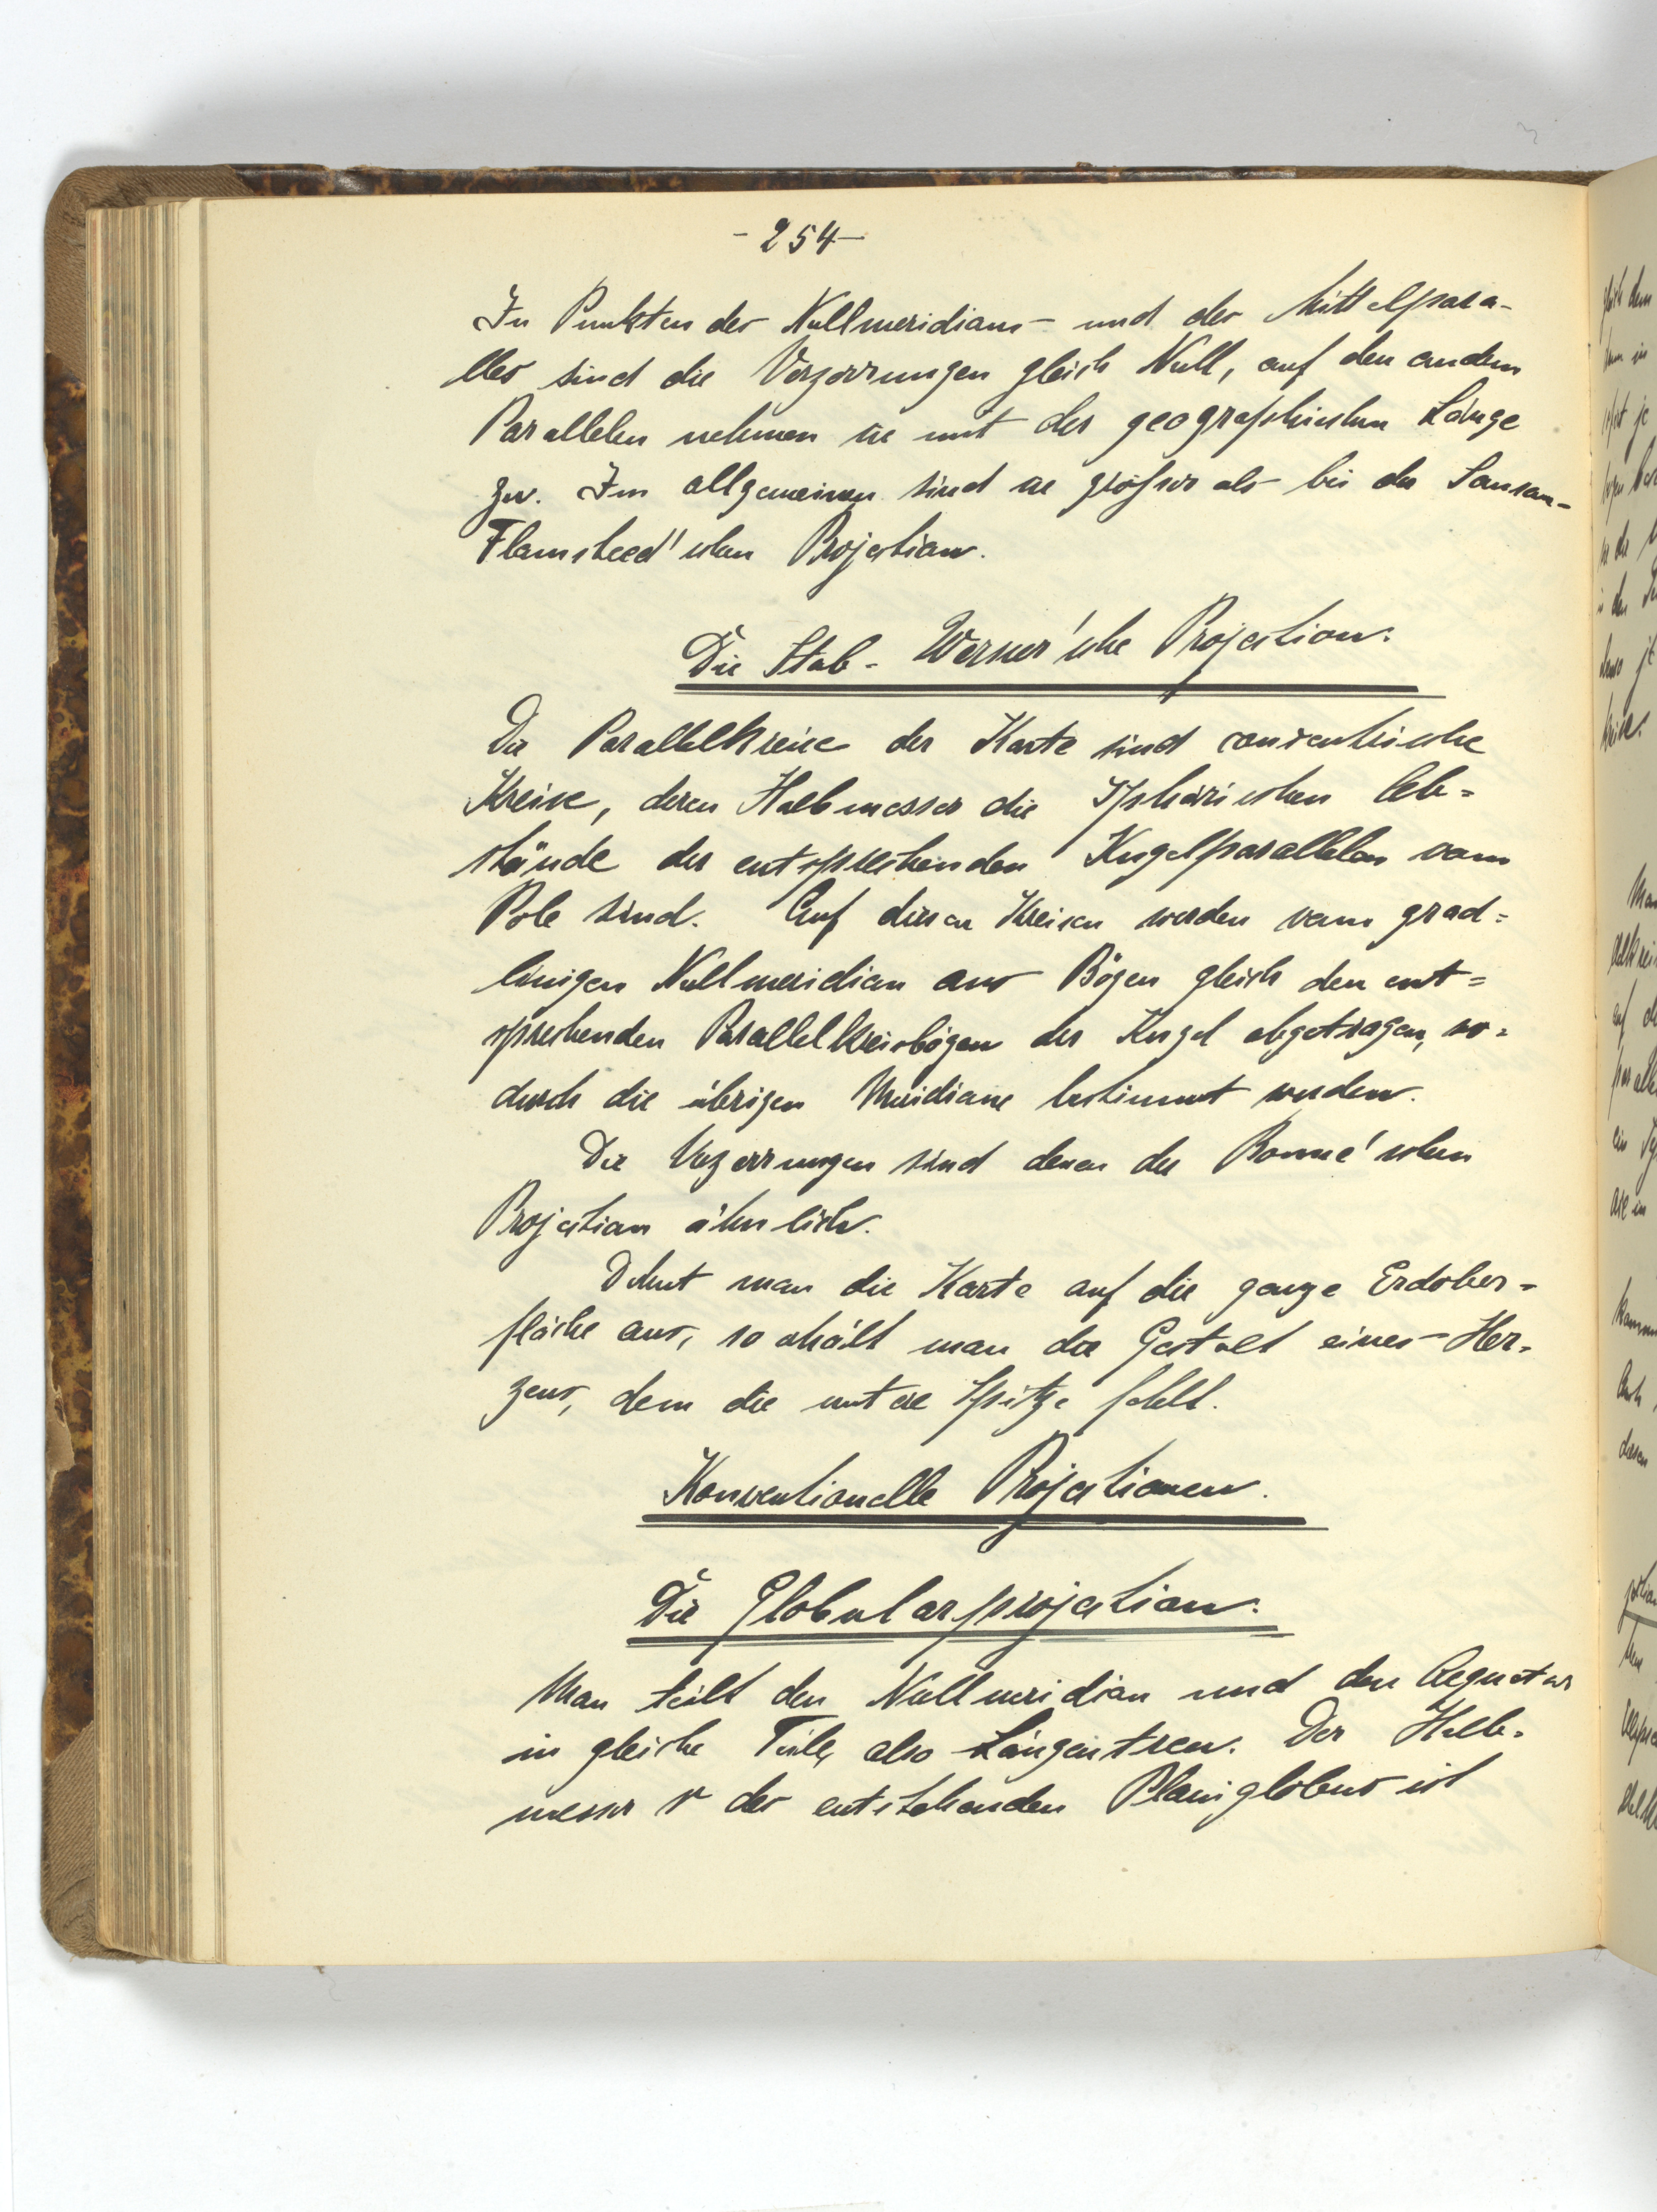 - 254 -
In Punkten des Nullmeridians und des Mittelpara-
lles sind die Verzerrungen gleich Null, auf den andern
Parallelen nehmen sie mit der geographischen Länge
zu. Im allgemeinen sind sie größer als bei der Sanson-
Flamsteed'schen Projection.
Die Stab-Werner'sche Projection.
Die Parallelkreise der Karte sind concentrische
Kreise, deren Halbmesser die sphärischen Ab=
stände der entsprechenden Kugelparallelen vom
Pole sind. Auf diesen Kreisen werden vom grad=
linigen Nullmeridian aus Bögen gleich den ent=
sprechenden Parallelkreisbögen der Kugel abgetragen, wo=
durch die übrigen Meridiane bestimmt werden.
Die Verzerrungen sind denen der Bonne'schen
Projection ähnlich.
Dehnt man die Karte auf die ganze Erdober=
fläche aus, so erhält man die Gestalt eines Her=
zens, dem die untere Spitze fehlt.
Konventionelle Projectionen.
Die Globularprojection.
Man teilt den Nullmeridian und den Aequator
in gleiche Teile, also längentreu. Der Halb=
messer r des entstehenden Planiglobus ist